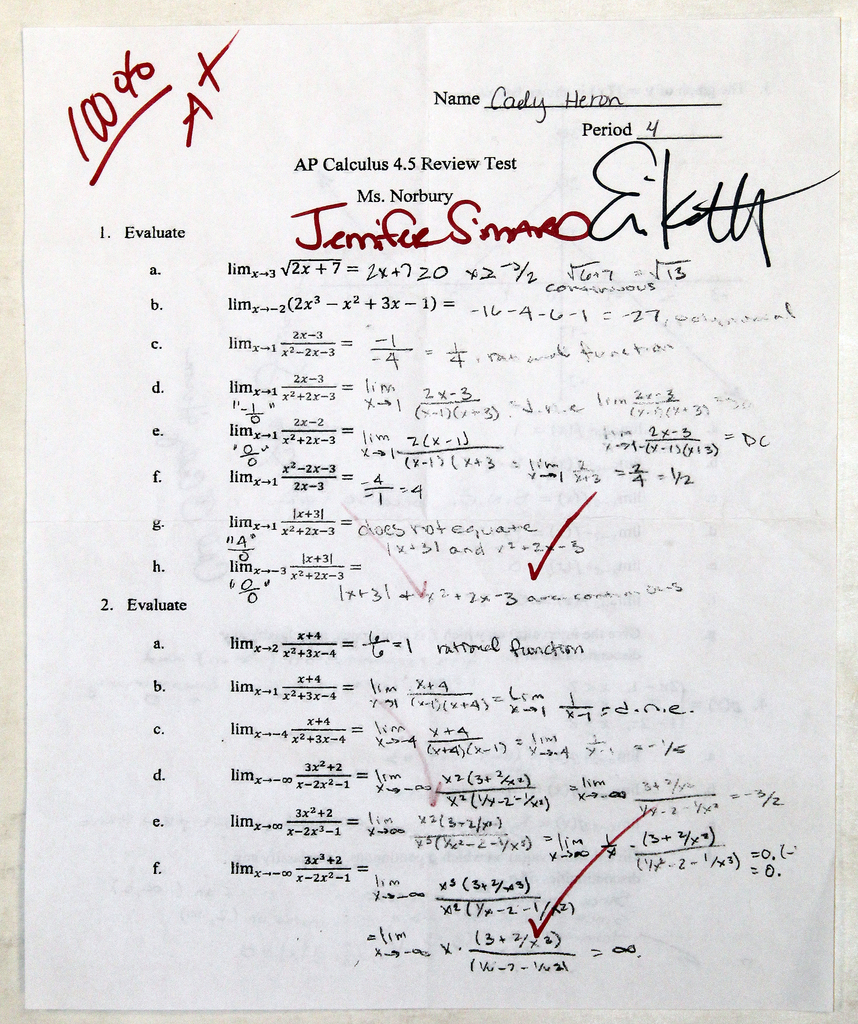 100% A+
Name Cady Heron
Period 4
AP Calculus 4.5 Review Test
Ms. Norbury
Jennifer Simard
1. Evaluate
a. lim x→3 √(2x + 7) = 2x+7≥0 x≥ -7/2 √6+7 = √13
continuous
b. lim x→−2 (2x³ − x² + 3x − 1) = -16-4-6-1 = -27, polynomial
c. lim x→1 (2x−3)/(x²−2x−3) = -1/-4 = 1/4, rational function
d. lim x→1 (2x−3)/(x²+2x−3) = lim x→1 (2x-3)/((x-1)(x+3)) = d.n.e lim (2x-3)/((x-1)(x+3))
"-1/0"
e. lim x→1 (2x−2)/(x²+2x−3) = lim x→1 2(x-1)/((x-1)(x+3 = lim x→1 2/(x+3) = 2/4 = 1/2
lim x→1 (2x-3)/((x-1)(x+3)) = DC
"0/0"
f. lim x→1 (x²−2x−3)/(2x−3) = -4/-1 = 4
g. lim x→1 |x+3|/(x²+2x−3) = does not equate
|x+3| and x²+2x-3
"4/0"
h. lim x→−3 |x+3|/(x²+2x−3) =
"0/0"
|x+3| + x²+2x-3 are continuous
2. Evaluate
a. lim x→2 (x+4)/(x²+3x−4) = 6/6 = 1 rational function
b. lim x→1 (x+4)/(x²+3x−4) = lim x→1 (x+4)/((x-1)(x+4)) = lim x→1 1/(x-1) = d.n.e.
c. lim x→−4 (x+4)/(x²+3x−4) = lim x→-4 (x+4)/((x+4)(x-1)) = lim x→-4 1/(x-1) = -1/5
d. lim x→−∞ (3x²+2)/(x−2x²−1) = lim x→-∞ x²(3+2/x²)/x²(1/x-2-1/x²) = lim x→-∞ (3+2/x²)/(1/x-2-1/x²) = -3/2
e. lim x→∞ (3x²+2)/(x−2x³−1) = lim x→∞ x²(3+2/x²)/x³(1/x²-2-1/x³) = lim x→∞ 1/x · (3+2/x²)/(1/x²-2-1/x³) = 0.(-
= 0.
f. lim x→−∞ (3x³+2)/(x−2x²−1) =
lim x→-∞ x³(3+2/x³)/x²(1/x-2-1/x²)
= lim x→-∞ x · (3+2/x³)/(1/x-2-1/x²) = ∞.